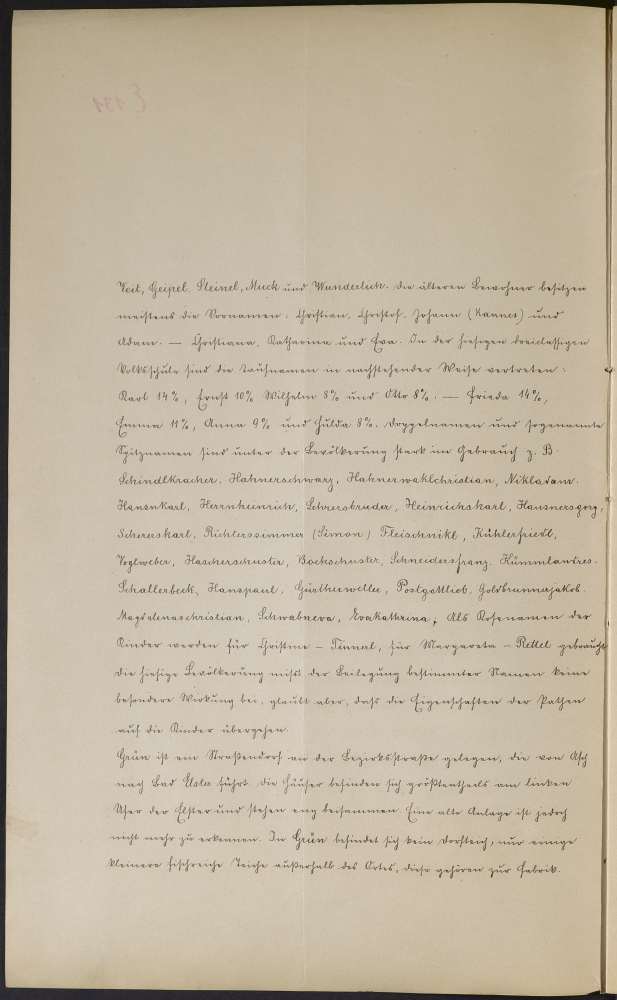 Veit, Geipel, Steinel, Muck und Wunderlich. Die älteren Bewohner besitzen
meistens die Vornamen: Christian, Christof, Johann (Hannes) und
Adam. — Christiana, Katharina und Eva. In der hiesigen dreiclassigen
Volksschule sind die Taufnamen in nachstehender Weise vertreten:
Karl 14%, Ernst 10% Wilhelm 8% und Otto 8%. — Frieda 14%,
Emma 11%, Anna 9% und Hulda 8%. Doppelnamen und sogenannte
Spitznamen sind unter der Bevölkerung stark im Gebrauch z. B.
Schindlkracher, Hahnerschwarz, Hahnerwaklchristian, Nikladam.
Hansnkarl, Herrnheinrich, Schrersbruder, Heinrichskarl, Hausnersgorg,
Schererskarl, Richterssimmer (Simon) Fleischnikl, Kühlerfriedl,
Voglweber, Hascherschuster, Bockschuster, Schneidersfranz, Kümmlandres.
Schallerbeck, Hanspaul, Gürtlerwellee, Postgottlieb, Goldbrunnajakob.
Magdalenaschristian, Schwabneva, Evakathrina, Als Kosenamen der
Kinder werden für Christine - Tinnerl, für Margareta - Rettel gebraucht
Die hiesige Bevölkerung mißt der Beilegung bestimmter Namen keine
besondere Wirkung bei, glaubt aber, daß die Eigenschaften der Pathen
auf die Kinder übergehen.
Grün ist ein Straßendorf an der Bezirksstraße gelegen, die von Asch
nach Bad Elster führt. Die Häuser befinden sich größtentheils am linken
Ufer der Elster und stehen eng beisammen. Eine alte Anlage ist jedoch
nicht mehr zu erkennen. In Grün befindet sich kein Dorfteich, nur einige
kleinere fischreiche Teiche außerhalb des Ortes, diese gehören zur Fabrik.